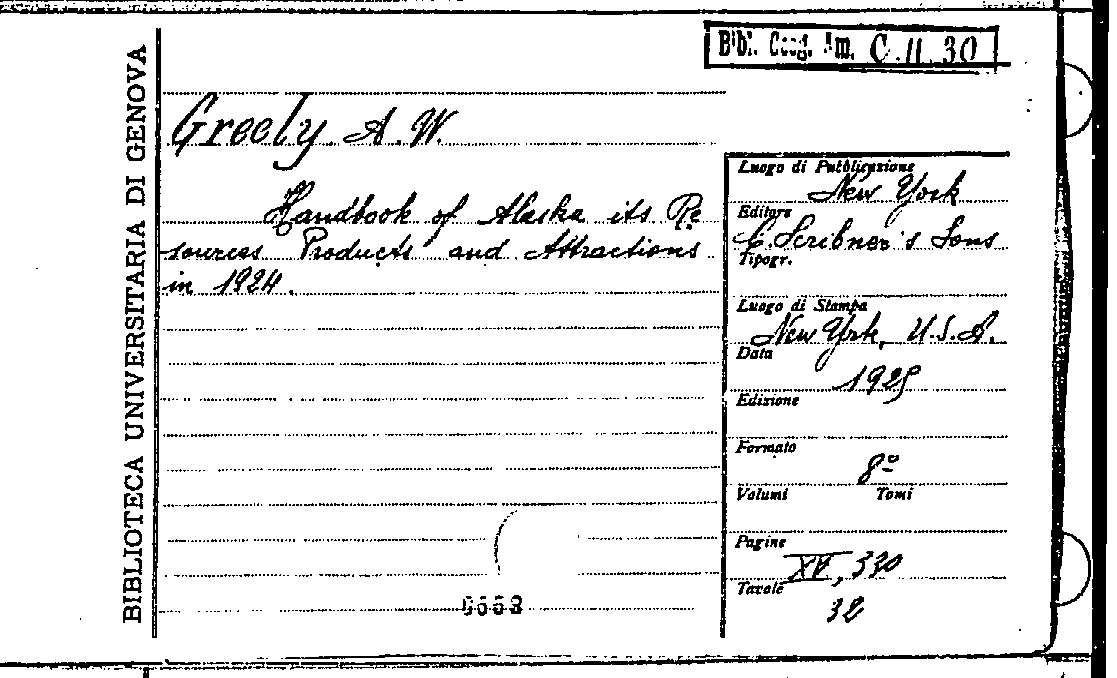 BIBLIOTECA UNIVERSITARIA DI GENOVA
C.II.30
Greely A.W.
Handbook of Alaska its Re
sources Products and Attractions
in 1924.
Luogo di Pubblicazione
New York
Editore
C. Scribner's Sons
Tipogr.
Luogo di Stampa
New York, U.S.A.
Data
1925
Edizione
Formato
8º
Volumi Tomi
Pagine
XV, 330
Tavole
32